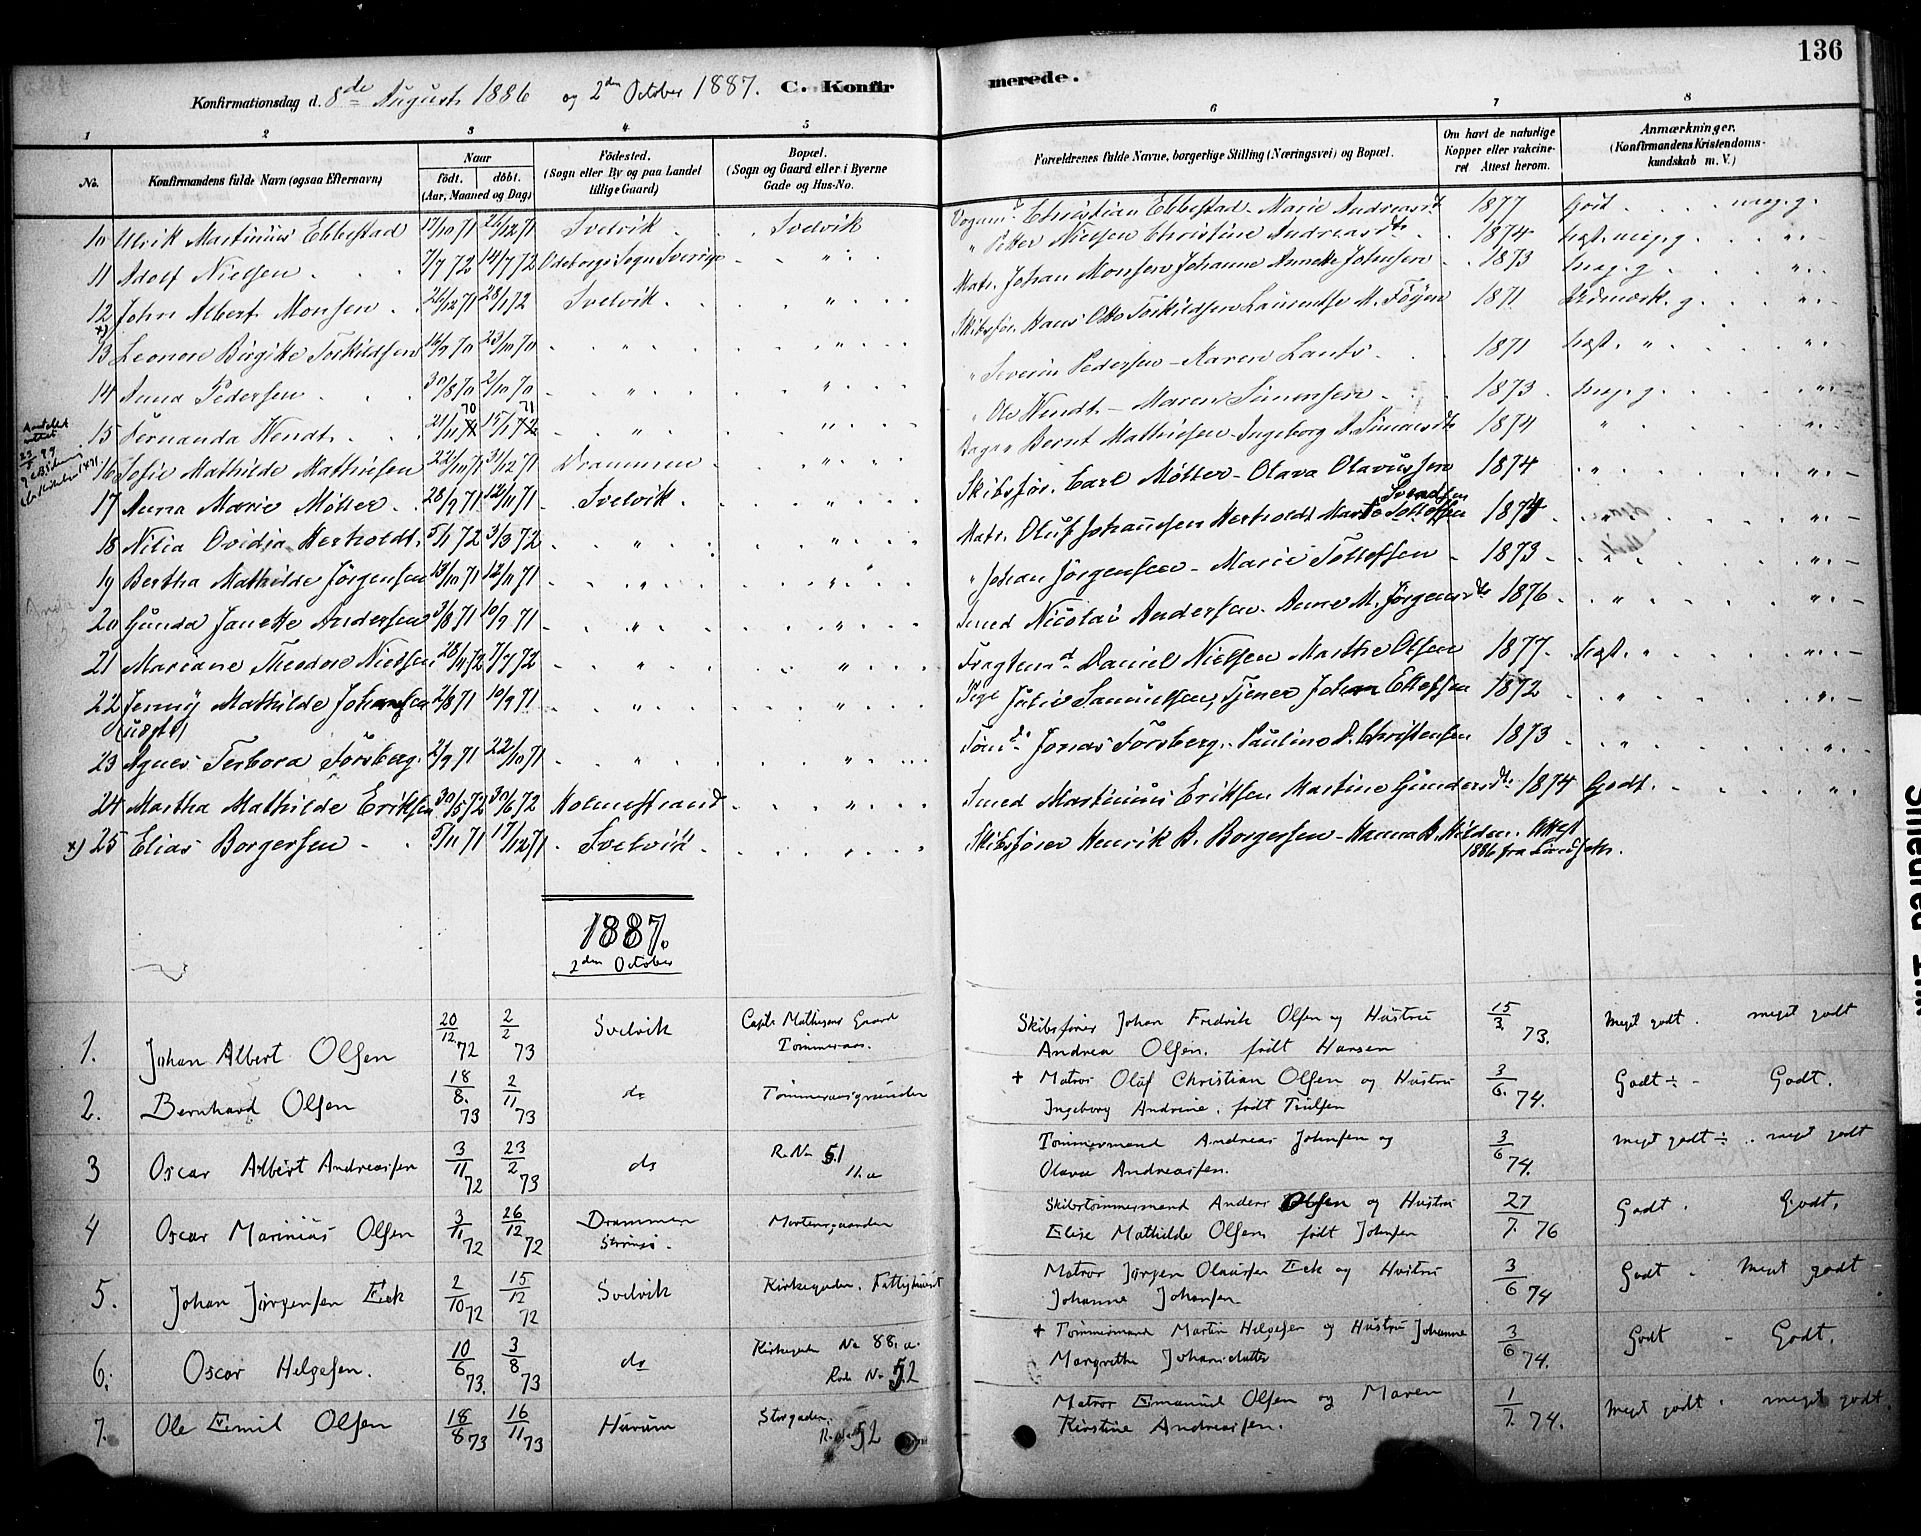 136
Konfirmationsdag d. 8de August 1886 og 2den October 1887. C. Konfirmerede.
1 2 3 4 5 6 7 8
No. Konfirmandens fulde Navn (ogsaa Efternavn) Naar født. døbt. (Aar, Maaned og Dag) Fødested. (Sogn eller By og paa Landet tillige Gaard) Bopæl. (Sogn og Gaard eller i Byerne Gade og Hus-No. Forældrenes fulde Navne, borgerlige Stilling (Næringsvei) og Bopæl. Om havt de naturlige Kopper eller vakcineret Attest herom. Anmærkninger, (Konfirmandens Kristendomskundskab m. V.)
10 Ulrik Martinius Ebbestad 17/10 71 26/12 71 Svelvik Svelvik Vognmd Christian Ebbestad - Marie Andreasdt 1877 Godt meg. g.
11 Adolf Nielsen 7/7 72 14/7 72 Odeborgs Sogn Sverige " " Petter Nielsen Christine Andreasdtr 1874 meg. g. "
12 John Albert Monsen 26/12 71 28/1 72 Svelvik " Matr. Johan Monsen Johanne Annette Johnsen 1873 meg. g. "
x) 13 Leonore Birgitte Torkildsen 16/9 70 23/10 70 " " Skibsfør. Hans Otto Torkildsen Laurentse M. Føyen 1871 Udmærk. g. "
14 Anna Pedersen 30/8 70 2/10 70 " " " Severin Pedersen - Karen Lants 1871 " "
15 Fernanda Wendt 21/11 70 15/1 71 " " " Ole Wendt - Maren Simensen 1873 meg. g. "
16 Sofie Mathilde Mathiesen 22/10 71 31/12 71 Drammen " Bernt Mathiesen - Ingeborg A. Simensdt 1874 " "
17 Anna Marie Møller 28/9 71 12/11 71 Svelvik " Skibsfør. Carl Møller - Olava Olavussen 1874 " "
18 Nilia Ovidia Herholdt 5/1 72 3/3 72 " " Matr. Oluf Johannsen Herholdt Marie Tollefsen Svendsen 1874 " "
19 Bertha Mathilde Jørgensen 12/11 71 " " " Johan Jørgensen - Marie Tollefsen 1873 " "
20 Gunda Janette Andersen 3/8 71 10/9 71 " " Smed Nicolai Andersen - Anne M. Jørgensdtr 1876 " "
21 Mariane Theodore Nielsen 28/4 72 7/7 72 " " Fragtemd Daniel Nielsen Marthe Olsen 1877 " "
22 Jenny Mathilde Johansen (uægte) 2/8 71 10/9 71 " " Pige Julie Samuelsen, Tjener Johan Ellefsen 1872 " "
23 Agnes Terbora Forsberg 2/9 71 22/10 71 " " Tømd Jonas Forsberg - Pauline D. Christensen 1873 " "
24 Martha Mathilde Eriksen 30/5 72 30/6 72 Holmestrand " Smed Martinius Eriksen Martine Gundersdtr 1874 Godt "
x) 25 Elias Borgersen 5/11 71 17/12 71 Svelvik " Skibsfører Henrik B. Borgersen - Hanna B. Attest 1886 fra
1887.
2den October
1. Johan Albert Olsen 20/12 72 2/2 73 Svelvik Capt. Mathesens Gaard Tømmeraas. Skibsfører Johan Fredrik Olsen og Hustru Andrea Olsen, født Hansen 15/3 73. Meget godt. meget godt
2. Bernhard Olsen 18/8 73 2/11 73 do Tømmeraasgrunden + Matros Oluf Christian Olsen og Hustru Ingeborg Andrine, født Truelsen 3/6 74. Godt ÷ - Godt.
3 Oscar Albert Andreassen 3/11 72 23/2 73 do R. No 51 11. a Tømmermand Andreas Johnsen og Olava Andreassen. 3/6 74. meget godt ÷ .. meget godt
4 Oscar Marinius Olsen 3/11 72 26/12 72 Drammen Strømsø. Mortensgaarden Skibstømmermand Anders Olsen og Hustru Elise Mathilde Olsen født Johnsen 27/7 76 Godt. Godt.
5. Johan Jørgensen Eek 2/10 72 15/12 72 Svelvik Kirkegaden. Fattighuset Matros Jørgen Olaussen Eek og Hustru Johanne Johansen 3/6 74 Godt - Meget godt
6. Oscar Helgesen. 10/6 73. 3/8 73 do Kirkegaden No 88. a. Rode No 52 + Tømmermand Martin Helgesen og Hustru Johanne Margrethe Johansdatter 3/6 74. Godt - Godt.
7. Ole Emil Olsen 18/8 73 16/11 73 Hurum Storgaden. 52 Matros Emanuel Olsen og Maren Kirstine Andreassen. 1/7 74. Meget godt. meget godt.